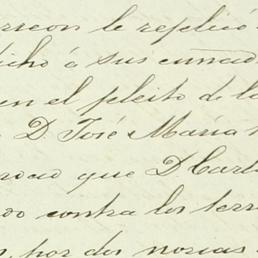 rreon le replicó
dicho á sus cuñad
en el pleito de la
D. José María
que D Carl
contra los terr
por dos norias